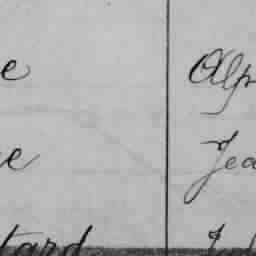 e Alp
e Jea
tard